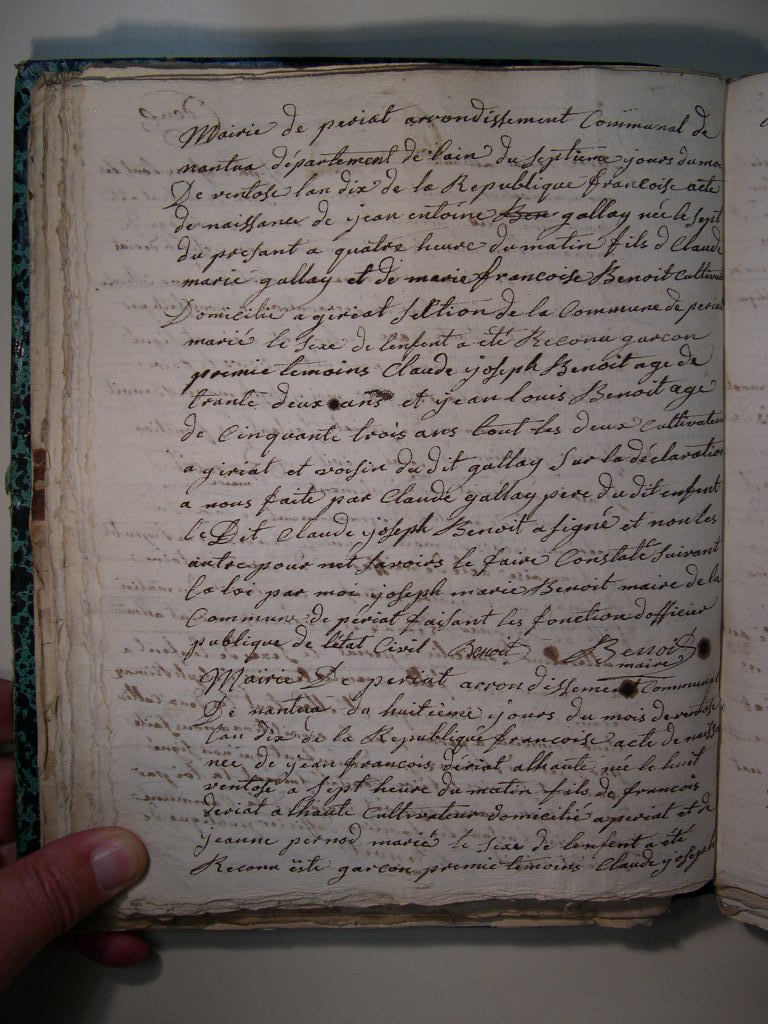 Mairie de periat arrondissement Communal de
nantua département de lain du septieme jours du moi
De ventose lan dix de la Republique francoise acte
de naissance de jean entoine gallay née le sept
du presant a quatre heure du matin fils d Claude
marie gallay et de marie francoise Benoit Cultivateu
Domicilié a giriat sektion de la Commune de periat
marié le sexe de lenfent a été Reconu garcon
premie temoins Claude joseph Benoit age de
trante deux ans et jean louis Benoit age
de Cinquante trois ans tout les deux Cultivateur
a giriat et voisin du dit gallay sur la déclaration
a nous faite par Claude gallay pere du dit enfent
le Dit Claude joseph Benoit a signé et non les
autre pour net savoirs le faire Constalé suivant
la loi par moi joseph marie Benoit maire de la
Commune de périat faisant les fonction dofficier
publique de létat Civil Benoit Benoit
maire
Mairie De periat arrondissement Communal
De nantua du huitieme jours du mois de ventose
lan dix de la Republique francoise acte de naissa
nce de jean francois deriat alhaute née le huit
ventose a sept heure du matin fils de francois
deriat alhaute Cultivateur domicilié a periat et de
jeanne pernod marié le sexe de lenfent a été
Reconu este garcon premie temoins Claude joseph